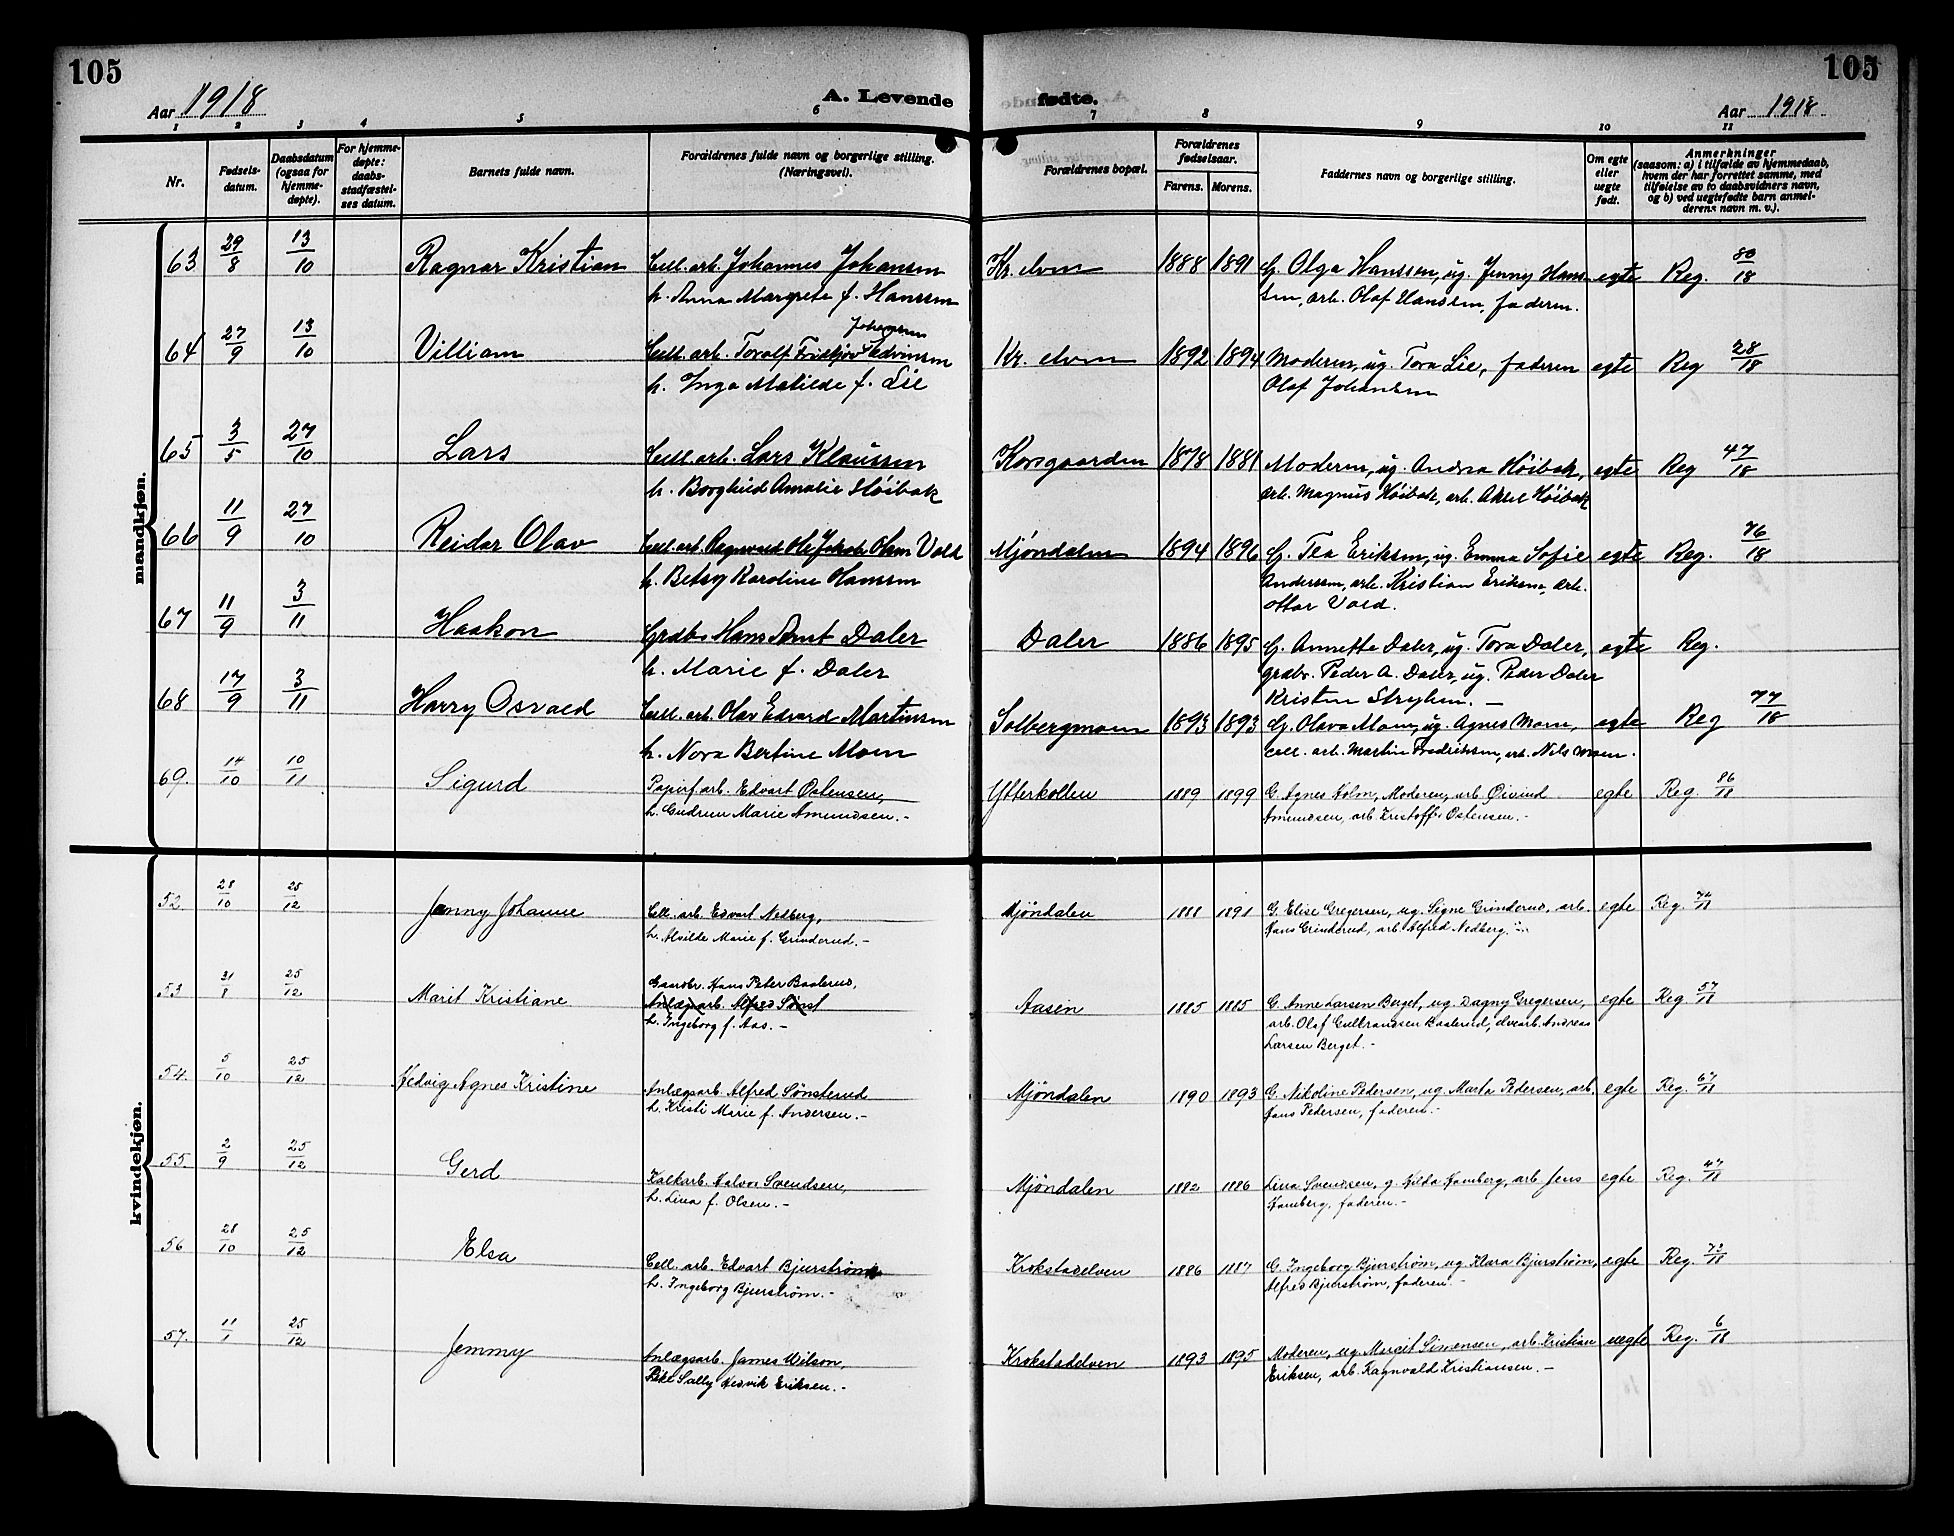 105
105
Aar 1918
A. Levende fødte.
Aar 1918
1 2 3 4 5 6 7 8 9 10 11
Nr.
Fødsels-
datum.
Daabsdatum
(ogsaa for
hjemme-
døpte).
For hjemme-
døpte:
daabs-
stadfæstel-
ses datum.
Barnets fulde navn.
Forældrenes fulde navn og borgerlige stilling.
(Næringsvei).
Forældrenes bopæl.
Forældrenes
fødselsaar.
Farens. Morens.
Faddernes navn og borgerlige stilling.
Om egte
eller
uegte
født.
Anmerkninger
(saasom: a) i tilfælde av hjemmedaab,
hvem der har forrettet samme, med
tilføielse av to daabsvidners navn,
og b) ved uegtefødte barn anmel-
derens navn m. v.).
mandkjøn.
63 29/8 13/10 Ragnar Kristian Cell. arb. Johannes Johansen Kr. elven 1888 1891 G. Olga Hanssen, ug. Jenny Hans- egte Reg. 80/18
h. Anna Margrete f. Hanssen sen, arb. Olaf Hanssen, faderen.
64 27/9 13/10 Villiam Cell. arb. Toralf Fridtjov Johansen Edvinsen Kr. elven 1892 1894 Moderen, ug. Tora Lie, faderen egte Reg 28/18
h. Inga Matilde f. Lie Olaf Johansen
65 3/5 27/10 Lars Cell. arb. Lars Klaussen Korsgaarden 1878 1881 Moderen, ug. Andrea Høibak, egte Reg 47/18
h. Borghild Amalie Høibak arb. Magnus Høibak, arb. Aksel Høibak
66 11/9 27/10 Reidar Olav Cell. arb. Ragnvald Ole Jakob Olsen Vold Mjøndalen 1894 1896 G. Tea Eriksen, ug. Emma Sofie egte Reg. 76/18
h. Betsy Karoline Hanssen Anderssen, arb. Kristian Eriksen, arb.
Ottar Vold.
67 11/9 3/11 Haakon Grdbr. Hans Arnt Daler Daler 1886 1895 G. Annette Daler, ug. Tora Daler, egte Reg.
h. Marie f. Daler grdbr. Peder A. Daler, ug. Peder Daler
Kristen Stryken. —
68 17/9 3/11 Harry Osvald Cell. arb. Olav Edvard Martinsen Solbergmoen 1893 1893 G. Olava Moen, ug. Agnes Moen, egte Reg 77/18
h. Nora Bertine Moen cell. arb. Martin Fredriksen, arb. Nils Moen.
69. 14/10 10/11 Sigurd Papirf. arb. Edvart Østensen, Ytterkollen 1889 1899 G. Agnes Holm, Moderen, arb. Øivind egte Reg. 86/18
h. Gudrun Marie Amundsen. - Amundsen, arb. Kristoffer Østensen. -
kvindekjøn.
52. 28/10 25/12 Jenny Johanne Cell. arb. Edvart Nedberg, Mjøndalen 1888 1891 G. Elise Gregersen, ug. Signe Grinderud, arb. egte Reg. 74/18
h. Alvilde Marie f. Grinderud. - Hans Grinderud, arb. Alfred Nedberg. -
53 31/8 25/12 Marit Kristiane Gaardbr. Hans Peter Baalerud, Aasen 1885 1885 G. Anne Larsen Berget, ug. Dagny Gregersen, egte Reg. 57/18
Anlægsarb. Alfred Sønst
h. Ingeborg f. Aas. - arb. Olaf Gulbrandsen Baalerud, elvearb. Andreas
Larsen Berget. -
54. 5/10 25/12 Hedvig Agnes Kristine Anlægsarb. Alfred Sønsterud Mjøndalen 1890 1893 G. Nikoline Pedersen, ug. Marta Pedersen, arb. egte Reg. 67/18
h. Kristi Marie f. Andersen. - Hans Pedersen, faderen. -
55. 2/9 25/12 Gerd Kalkarb. Halvor Svendsen, Mjøndalen 1882 1886 Lina Svendsen, g. Hilda Hamberg, arb. Jens egte Reg. 47/18
h. Lina f. Olsen. - Hamberg, faderen. -
56 28/10 25/12 Elsa Cell. arb. Edvart Bjurstrøm Krokstadelven 1886 1887 G. Ingeborg Bjurstrøm, ug. Klara Bjurstrøm, egte Reg. 73/18
h. Ingeborg Bjurstrøm. - Alfred Bjurstrøm, faderen. -
57. 11/1 25/12 Jemmy Anlægsarb. James Wilson, Krokstadelven 1893 1895 Moderen, ug. Margit Simensen, arb. Kristian uegte Reg. 6/18
Pike Sally Hedvik Eriksen. - Eriksen, arb. Ragnvald Kristiansen. -